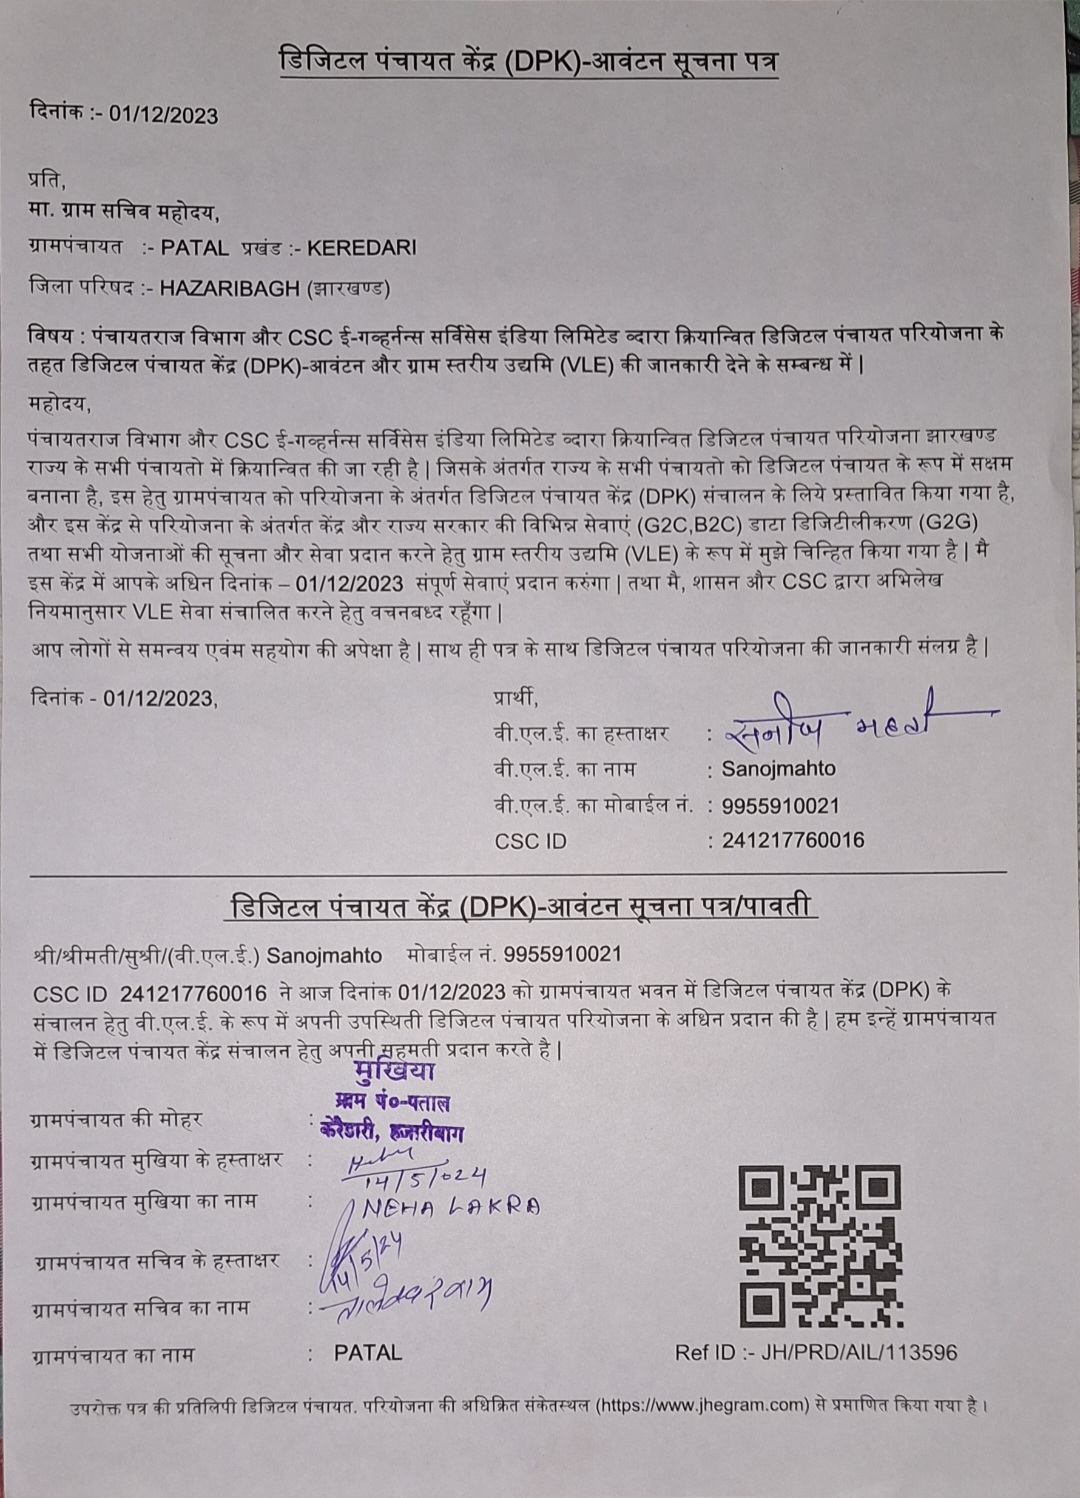 डिजिटल पंचायत केंद्र (DPK)-आवंटन सूचना पत्र
दिनांक :- 01/12/2023
प्रति,
मा. ग्राम सचिव महोदय,
ग्रामपंचायत :- PATAL प्रखंड :- KEREDARI
जिला परिषद :- HAZARIBAGH (झारखण्ड)
विषय : पंचायतराज विभाग और CSC ई-गव्हर्नन्स सर्विसेस इंडिया लिमिटेड व्दारा क्रियान्वित डिजिटल पंचायत परियोजना के
तहत डिजिटल पंचायत केंद्र (DPK)-आवंटन और ग्राम स्तरीय उद्यमि (VLE) की जानकारी देने के सम्बन्ध में |
महोदय,
पंचायतराज विभाग और CSC ई-गव्हर्नन्स सर्विसेस इंडिया लिमिटेड व्दारा क्रियान्वित डिजिटल पंचायत परियोजना झारखण्ड
राज्य के सभी पंचायतो में क्रियान्वित की जा रही है | जिसके अंतर्गत राज्य के सभी पंचायतो को डिजिटल पंचायत के रूप में सक्षम
बनाना है, इस हेतु ग्रामपंचायत को परियोजना के अंतर्गत डिजिटल पंचायत केंद्र (DPK) संचालन के लिये प्रस्तावित किया गया है,
और इस केंद्र से परियोजना के अंतर्गत केंद्र और राज्य सरकार की विभिन्न सेवाएं (G2C,B2C) डाटा डिजिटीलीकरण (G2G)
तथा सभी योजनाओं की सूचना और सेवा प्रदान करने हेतु ग्राम स्तरीय उद्यमि (VLE) के रूप में मुझे चिन्हित किया गया है | मै
इस केंद्र में आपके अधिन दिनांक – 01/12/2023 संपूर्ण सेवाएं प्रदान करुंगा | तथा मै, शासन और CSC द्वारा अभिलेख
नियमानुसार VLE सेवा संचालित करने हेतु वचनबध्द रहूँगा |
आप लोगों से समन्वय एवंम सहयोग की अपेक्षा है | साथ ही पत्र के साथ डिजिटल पंचायत परियोजना की जानकारी संलग्र है |
दिनांक - 01/12/2023,
प्रार्थी,
वी.एल.ई. का हस्ताक्षर : सनोज महतो
वी.एल.ई. का नाम : Sanojmahto
वी.एल.ई. का मोबाईल नं. : 9955910021
CSC ID : 241217760016
डिजिटल पंचायत केंद्र (DPK)-आवंटन सूचना पत्र/पावती
श्री/श्रीमती/सुश्री/(वी.एल.ई.) Sanojmahto मोबाईल नं. 9955910021
CSC ID 241217760016 ने आज दिनांक 01/12/2023 को ग्रामपंचायत भवन में डिजिटल पंचायत केंद्र (DPK) के
संचालन हेतु वी.एल.ई. के रूप में अपनी उपस्थिती डिजिटल पंचायत परियोजना के अधिन प्रदान की है | हम इन्हें ग्रामपंचायत
में डिजिटल पंचायत केंद्र संचालन हेतु अपनी सहमती प्रदान करते है |
मुखिया
ग्राम पं०-पताल
ग्रामपंचायत की मोहर :
केरेडारी, हजारीबाग
ग्रामपंचायत मुखिया के हस्ताक्षर :
14/5/024
ग्रामपंचायत मुखिया का नाम : NEHA LAKRA
ग्रामपंचायत सचिव के हस्ताक्षर : 14/5/24
ग्रामपंचायत सचिव का नाम :
ग्रामपंचायत का नाम : PATAL
Ref ID :- JH/PRD/AIL/113596
उपरोक्त पत्र की प्रतिलिपी डिजिटल पंचायत. परियोजना की अधिक्रित संकेतस्थल (https://www.jhegram.com) से प्रमाणित किया गया है ।